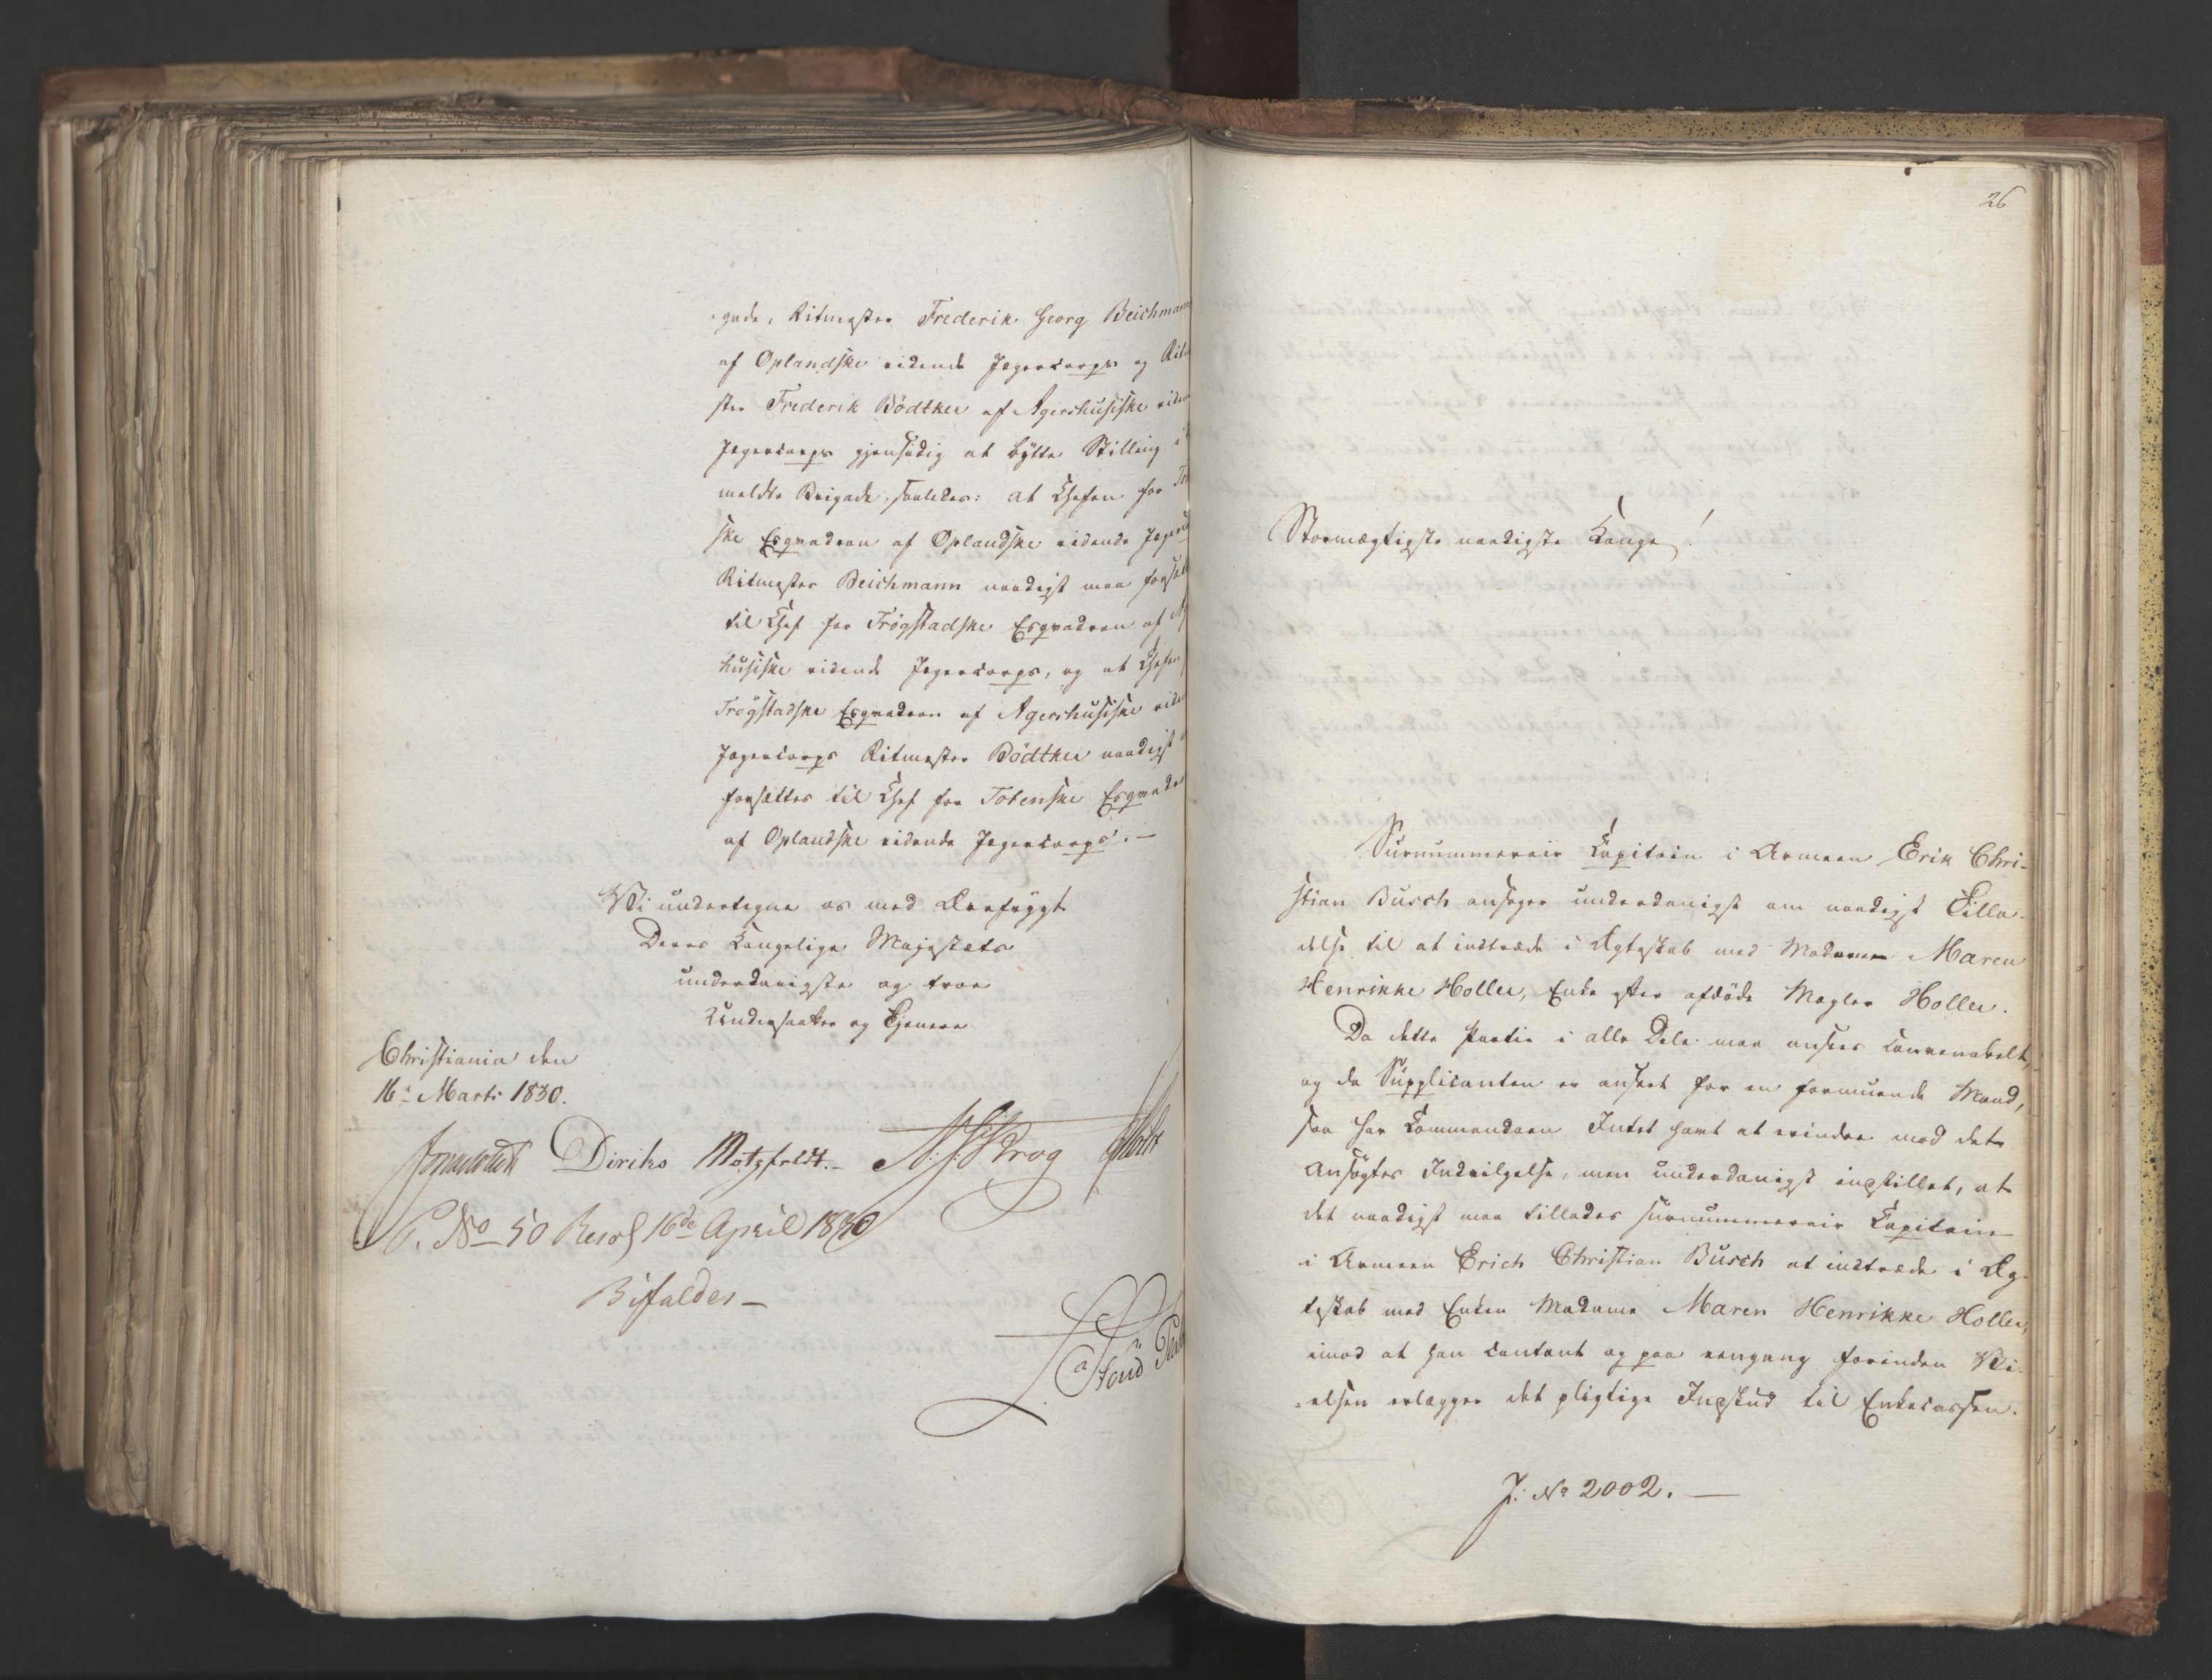 -gade, Ritmester Frederik Georg Beichmann
af Oplandske ridende Jægercorps og Ritm
ster Frederik Bödtker af Agershusiske riden
Jægercorps gjensidig at bÿtte Stilling i
meldte Brigade, saaledes: at Chefen for To
ske Esqvadron af Oplandske ridende Jægerc
Ritmester Beichmann naadigst maa forsæt
til Chef for Trögstadske Esqvadron af Ag
husiske ridende Jægercorps, og at Chefen
Trögstadske Esqvadron af Agershusiske ride
Jægercorps Ritmester Bödtker naadigst
forsættes til Chef for Totenske Esqvadro
af Oplandske ridende Jægercorps. —
Vi undertegne os med Ærefrygt
Deres Kongelige Majestæts
underdanigste og troe
Undersaatter og Tjenere
Christiania den
16de Marts 1830.
Diriks Motzfeldt. Krog Holst
P. No 50 Resol 16de April 1830
Bifaldes —
26
Stormægtigste naadigste Konge!
Surnummerair Capitain i Armeen Erik Chri-
stian Busch ansøger underdanigst om naadigst Tilla-
delse til at indtræde i Ægteskab med Madame Maren
Henrikke Holler, Enke efter afdöde Mægler Holler.
Da dette Partie i alle Dele maa ansees convenabelt,
og da Supplicanten er anseet for en formuende Mand,
saa har Commandoen Intet havt at erindre mod det
ansøgtes Indvilgelse, men underdanigst indstillet, at
det naadigst maa tillades surnummerair Capitain
i Armeen Erich Christian Busch at indtræde i Æg-
teskab med Enken Madame Maren Henrikke Holler,
imod at han contant og paa eengang forinden Vi-
-elsen erlægger det pligtige Indskud til Enkecassen.
J: No 2002. —